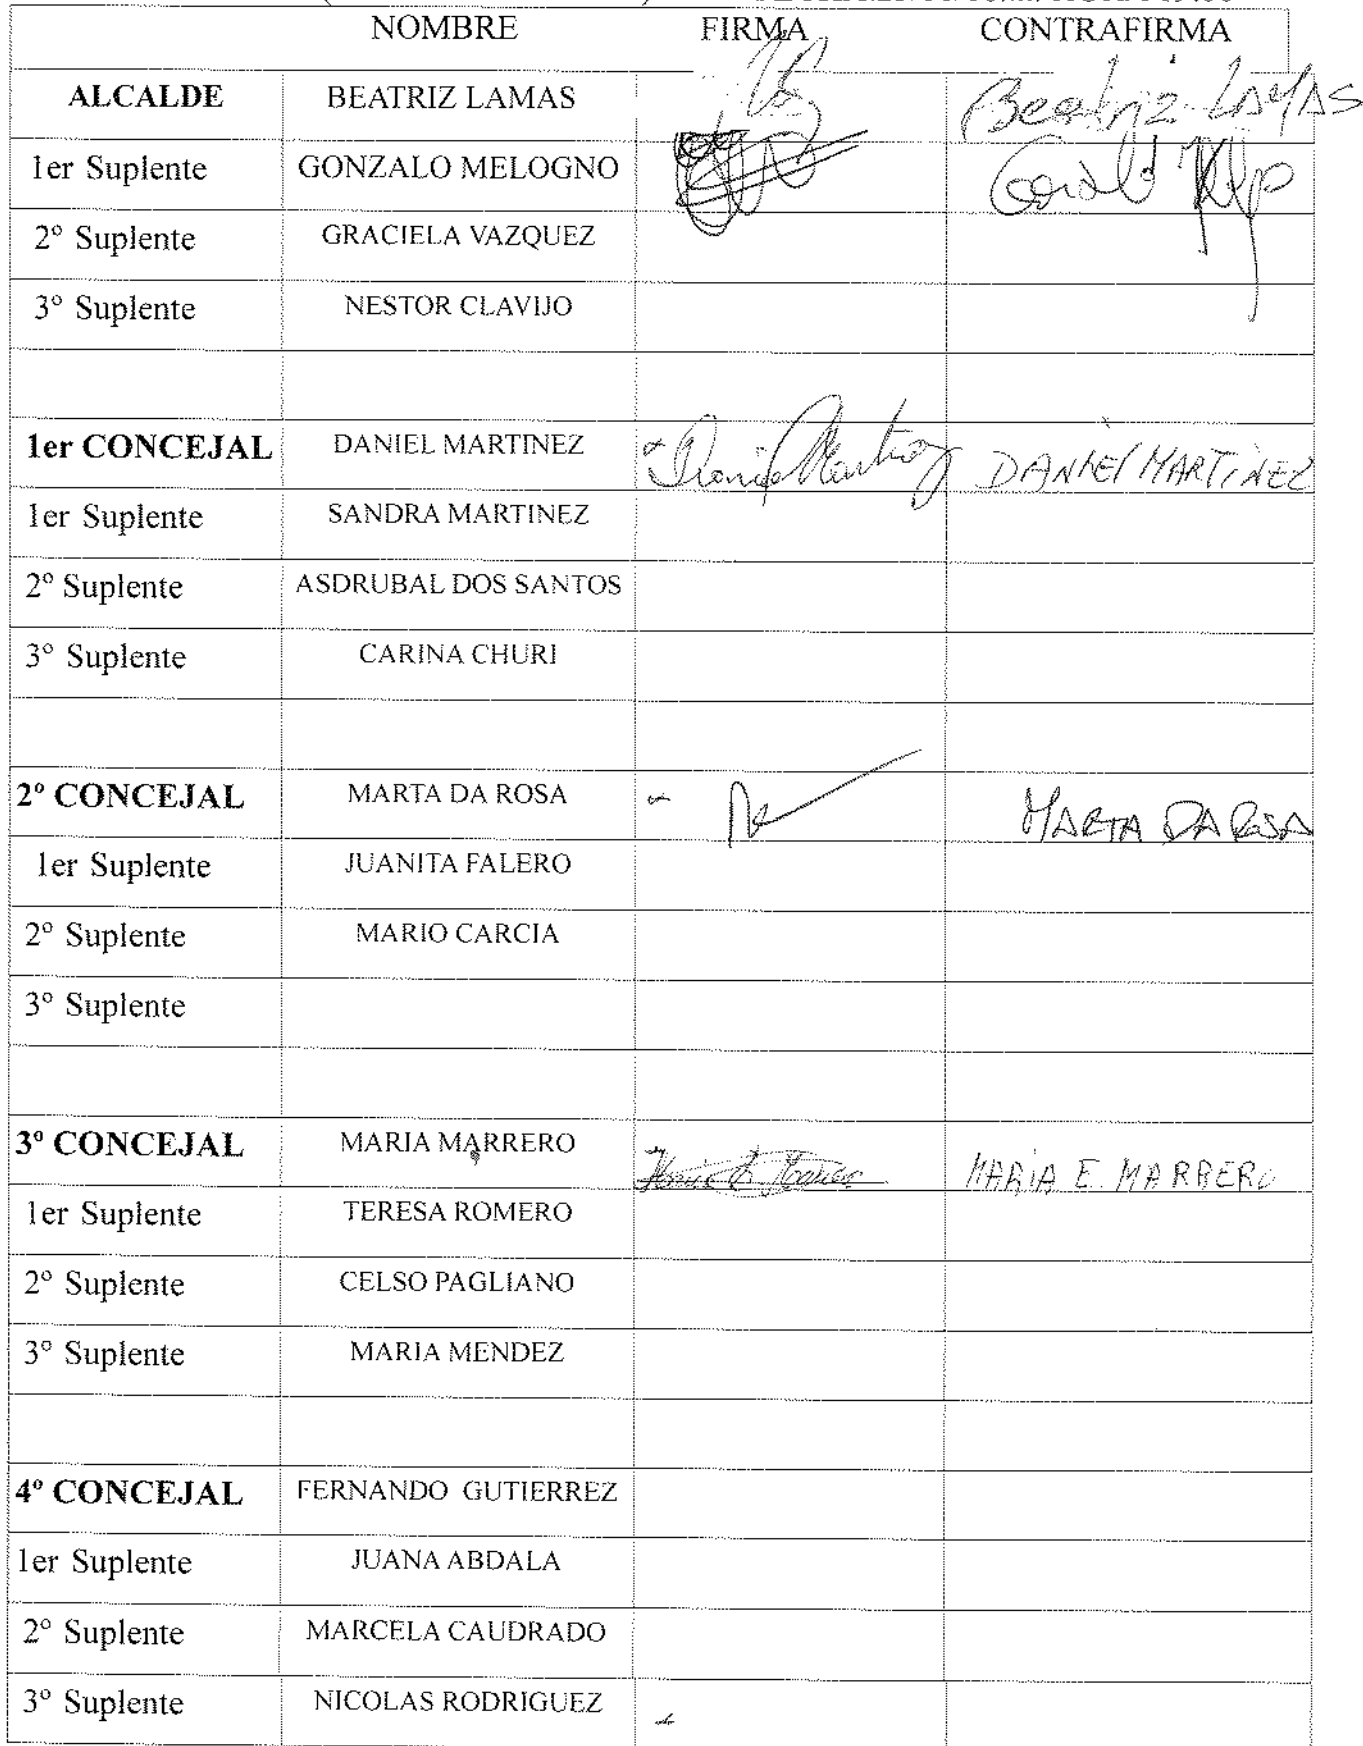 NOMBRE FIRMA CONTRAFIRMA
ALCALDE BEATRIZ LAMAS Beatriz LAMAS
1er Suplente GONZALO MELOGNO
2º Suplente GRACIELA VAZQUEZ
3º Suplente NESTOR CLAVIJO
1er CONCEJAL DANIEL MARTINEZ Daniel Martinez DANIEL MARTINEZ
1er Suplente SANDRA MARTINEZ
2º Suplente ASDRUBAL DOS SANTOS
3º Suplente CARINA CHURI
2º CONCEJAL MARTA DA ROSA MARTA DA ROSA
1er Suplente JUANITA FALERO
2º Suplente MARIO CARCIA
3º Suplente
3º CONCEJAL MARIA MARRERO MARIA E. MARRERO
1er Suplente TERESA ROMERO
2º Suplente CELSO PAGLIANO
3º Suplente MARIA MENDEZ
4º CONCEJAL FERNANDO GUTIERREZ
1er Suplente JUANA ABDALA
2º Suplente MARCELA CAUDRADO
3º Suplente NICOLAS RODRIGUEZ